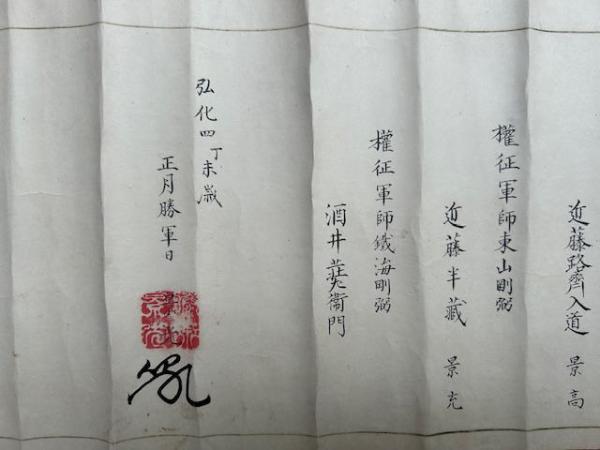 近藤路齊入道 景高
權征軍師東山剛弼
近藤半藏 景充
權征軍師鐵海剛弼
酒井莊衞門
弘化四丁未歳
正月勝軍日